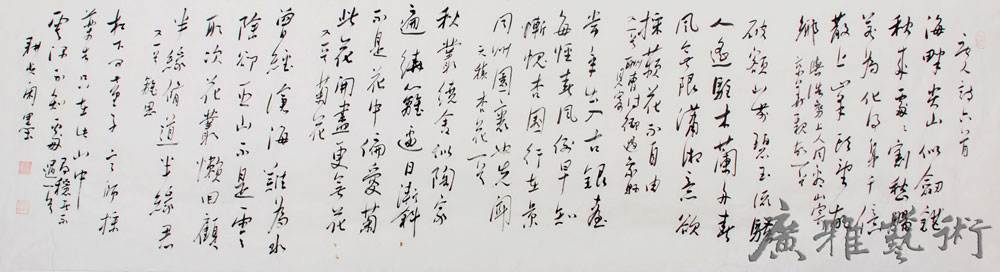 唐人詩六首
海畔尖山似劍鋩
秋來處處割愁腸
若為化得身千億
散上峰頭望故
鄉 與浩初上人同看山寄
京華親故一首
破額山前碧玉流騷
人遙駐木蘭舟春
風無限瀟湘意欲
採蘋花不自由
又一首 酬曹侍御過象縣
見寄
常年出入右銀臺
每怪春風例早迴
慚愧杏園行在景
同州園裏也先開
元稹杏花一首
秋叢繞舍似陶家
遍繞籬邊日漸斜
不是花中偏愛菊
此花開盡更無花
又一首 菊花
曾經滄海難為水
除卻巫山不是雲
取次花叢懶回顧
半緣修道半緣君
又一首 離思
松下問童子言師採
藥去只在此山中
雲深不知處
耕夫閑墨
廣雅藝術